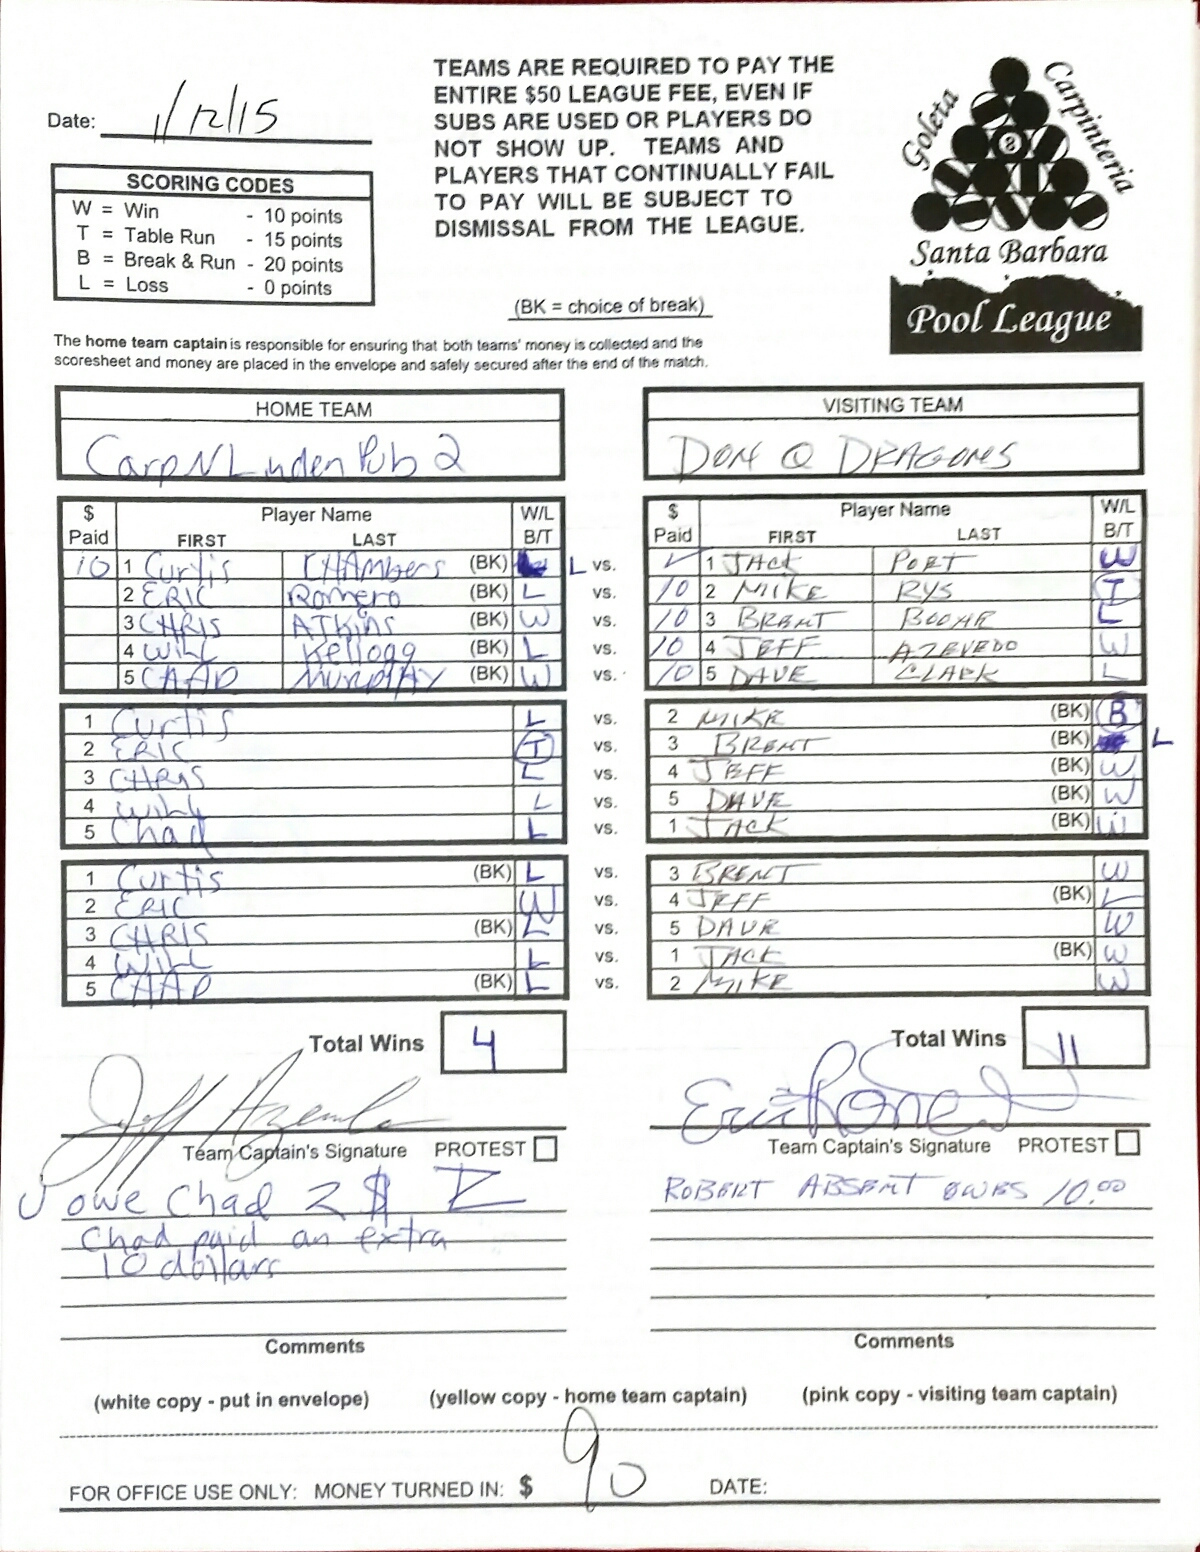 Date: 1/12/15
TEAMS ARE REQUIRED TO PAY THE
ENTIRE $50 LEAGUE FEE, EVEN IF
SUBS ARE USED OR PLAYERS DO
NOT SHOW UP. TEAMS AND
PLAYERS THAT CONTINUALLY FAIL
TO PAY WILL BE SUBJECT TO
DISMISSAL FROM THE LEAGUE.
(BK = choice of break)
Goleta
Carpinteria
8
Santa Barbara
Pool League
SCORING CODES
W = Win - 10 points
T = Table Run - 15 points
B = Break & Run - 20 points
L = Loss - 0 points
The home team captain is responsible for ensuring that both teams' money is collected and the
scoresheet and money are placed in the envelope and safely secured after the end of the match.
HOME TEAM
Carp N Linden Pub 2
VISITING TEAM
DON Q DRAGONS
$ Paid Player Name FIRST LAST W/L B/T
$ Paid Player Name FIRST LAST W/L B/T
10 1 Curtis CHAmbers (BK) L vs. ✓ 1 JACK PORT W
2 ERIC Romero (BK) L vs. 10 2 MIKE RYS T
3 CHRIS ATKINS (BK) W vs. 10 3 BRENT L
4 WILL Kellogg (BK) L vs. 10 4 JEFF AZEVEDO W
5 CHAD MURPHAY (BK) W vs. 10 5 DAVE CLARK L
1 Curtis L vs. 2 MIKE (BK) B
2 ERIC T vs. 3 BRENT (BK) L
3 CHRIS L vs. 4 JEFF (BK) W
4 WILL L vs. 5 DAVE (BK) W
5 Chad L vs. 1 JACK (BK) W
1 Curtis (BK) L vs. 3 BRENT W
2 ERIC W vs. 4 JEFF (BK) L
3 CHRIS (BK) L vs. 5 DAVE W
4 WILL L vs. 1 JACK (BK) W
5 CHAD (BK) L vs. 2 MIKE W
Total Wins 4
Total Wins 11
Jeff Azevedo
Eric Romero
Team Captain's Signature PROTEST
Team Captain's Signature PROTEST
owe Chad 2 $
Chad paid an extra
10 dollars
ROBERT ABSENT OWES 10.00
Comments
Comments
(white copy - put in envelope) (yellow copy - home team captain) (pink copy - visiting team captain)
FOR OFFICE USE ONLY: MONEY TURNED IN: $ 90 DATE: